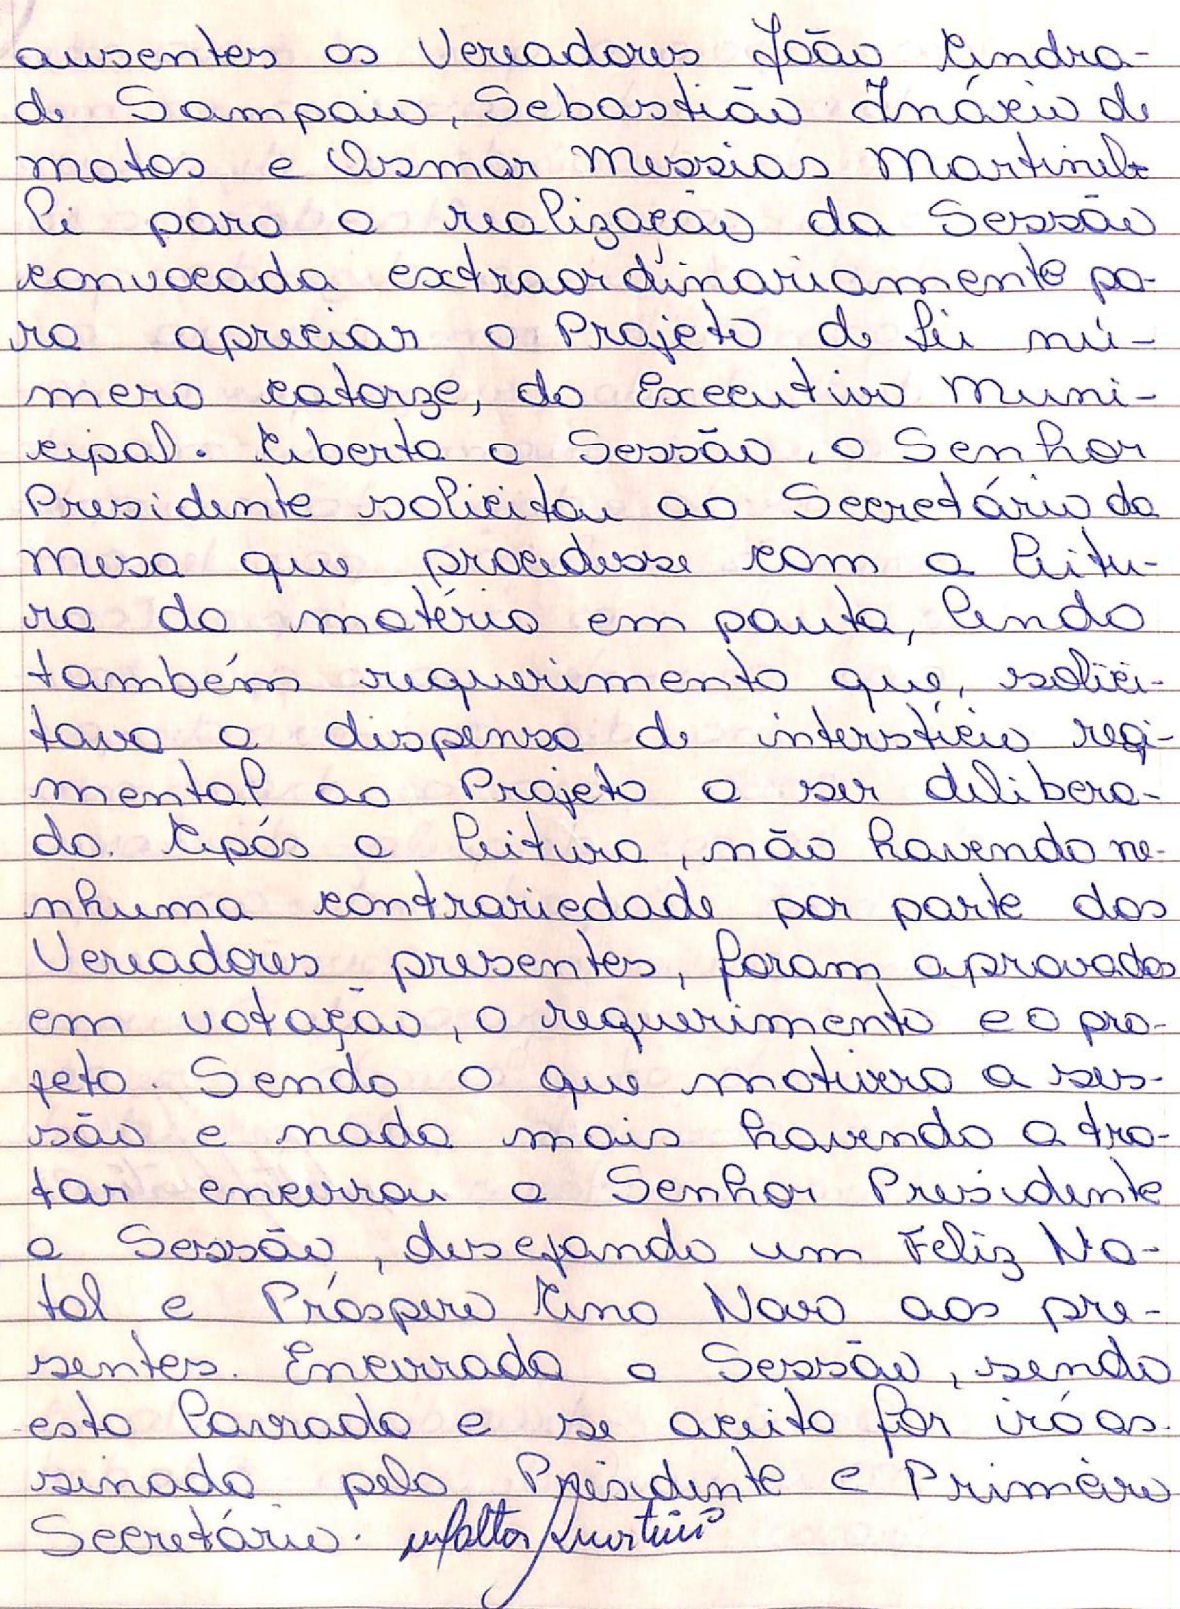 ausentes os Vereadores João Andra-
de Sampaio, Sebastião Inácio de
matos e Osmar Messias Martinel-
li para a realização da Sessão
convocada extraordinariamente pa-
ra apreciar o Projeto de Lei nú-
mero catorze, do Executivo Muni-
cipal. Aberta a Sessão, o Senhor
Presidente solicitou ao Secretário da
mesa que procedesse com a leitu-
ra da matéria em pauta, lendo
também requerimento que, solici-
tava a dispensa de interstício regi-
mental ao Projeto a ser delibera-
do. Após a leitura, não havendo ne-
nhuma contrariedade por parte dos
Vereadores presentes, foram aprovados
em votação, o requerimento e o pro-
jeto. Sendo o que motivara a ses-
são e nada mais havendo a tra-
tar encerrou o Senhor Presidente
a Sessão, desejando um Feliz Na-
tal e Próspero Ano Novo aos pre-
sentes. Encerrada a Sessão, sendo
esta lavrada e se aceita for irá as-
sinada pelo Presidente e Primeiro
Secretário.